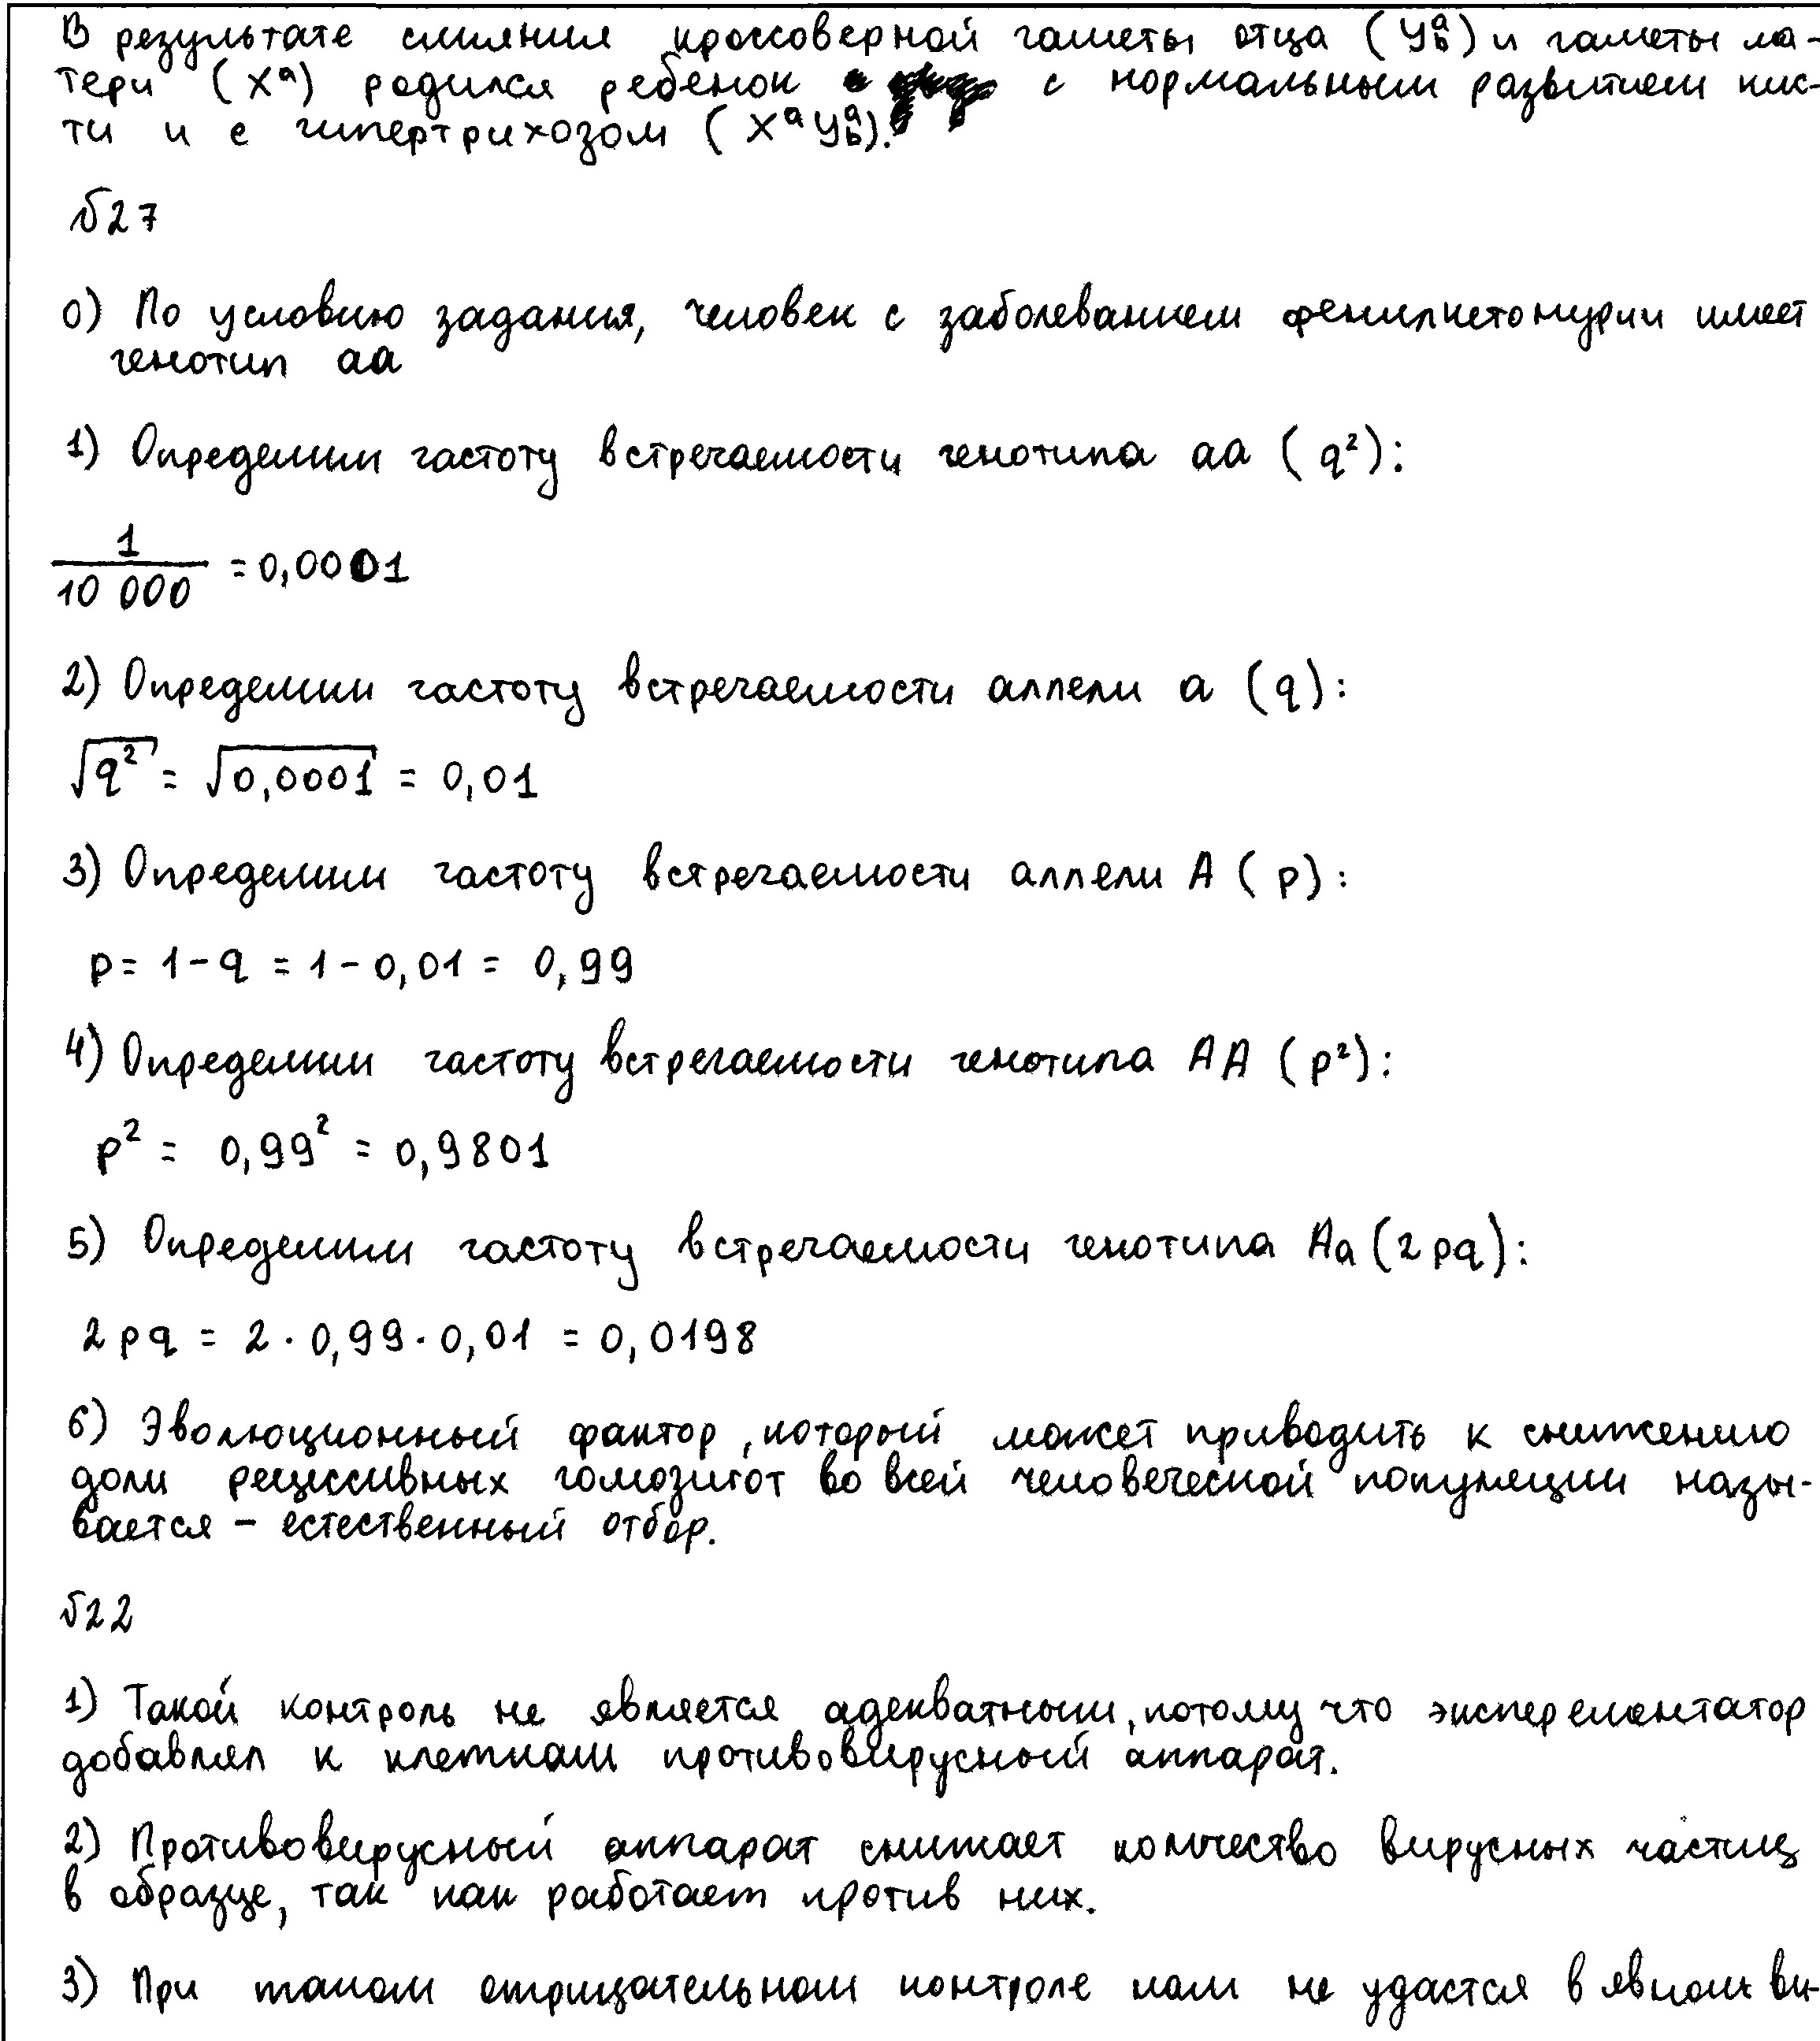 В результате слияния кроссоверной гаметы отца (Yᵃb) и гаметы ма-
тери (Xᵃ) родился ребенок с нормальным развитием кис-
ти и с гипертрихозом (XᵃYᵃb).
№27
0) По условию задания, человек с заболеванием фенилкетонурии имеет
генотип aa
1) Определим частоту встречаемости генотипа aa (q²):
1/10 000 = 0,0001
2) Определим частоту встречаемости аллели a (q):
√q² = √0,0001 = 0,01
3) Определим частоту встречаемости аллели A (p):
p = 1 - q = 1 - 0,01 = 0,99
4) Определим частоту встречаемости генотипа AA (p²):
p² = 0,99² = 0,9801
5) Определим частоту встречаемости генотипа Aa (2pq):
2pq = 2 · 0,99 · 0,01 = 0,0198
6) Эволюционный фактор, который может приводить к снижению
доли рецессивных гомозигот во всей человеческой популяции назы-
вается - естественный отбор.
№22
1) Такой контроль не является адекватным, потому что эксперементатор
добавлял к клеткам противовирусный аппарат.
2) Противовирусный аппарат снижает количество вирусных частиц
в образце, так как работает против них.
3) При таком отрицательном контроле нам не удастся в явном ви-